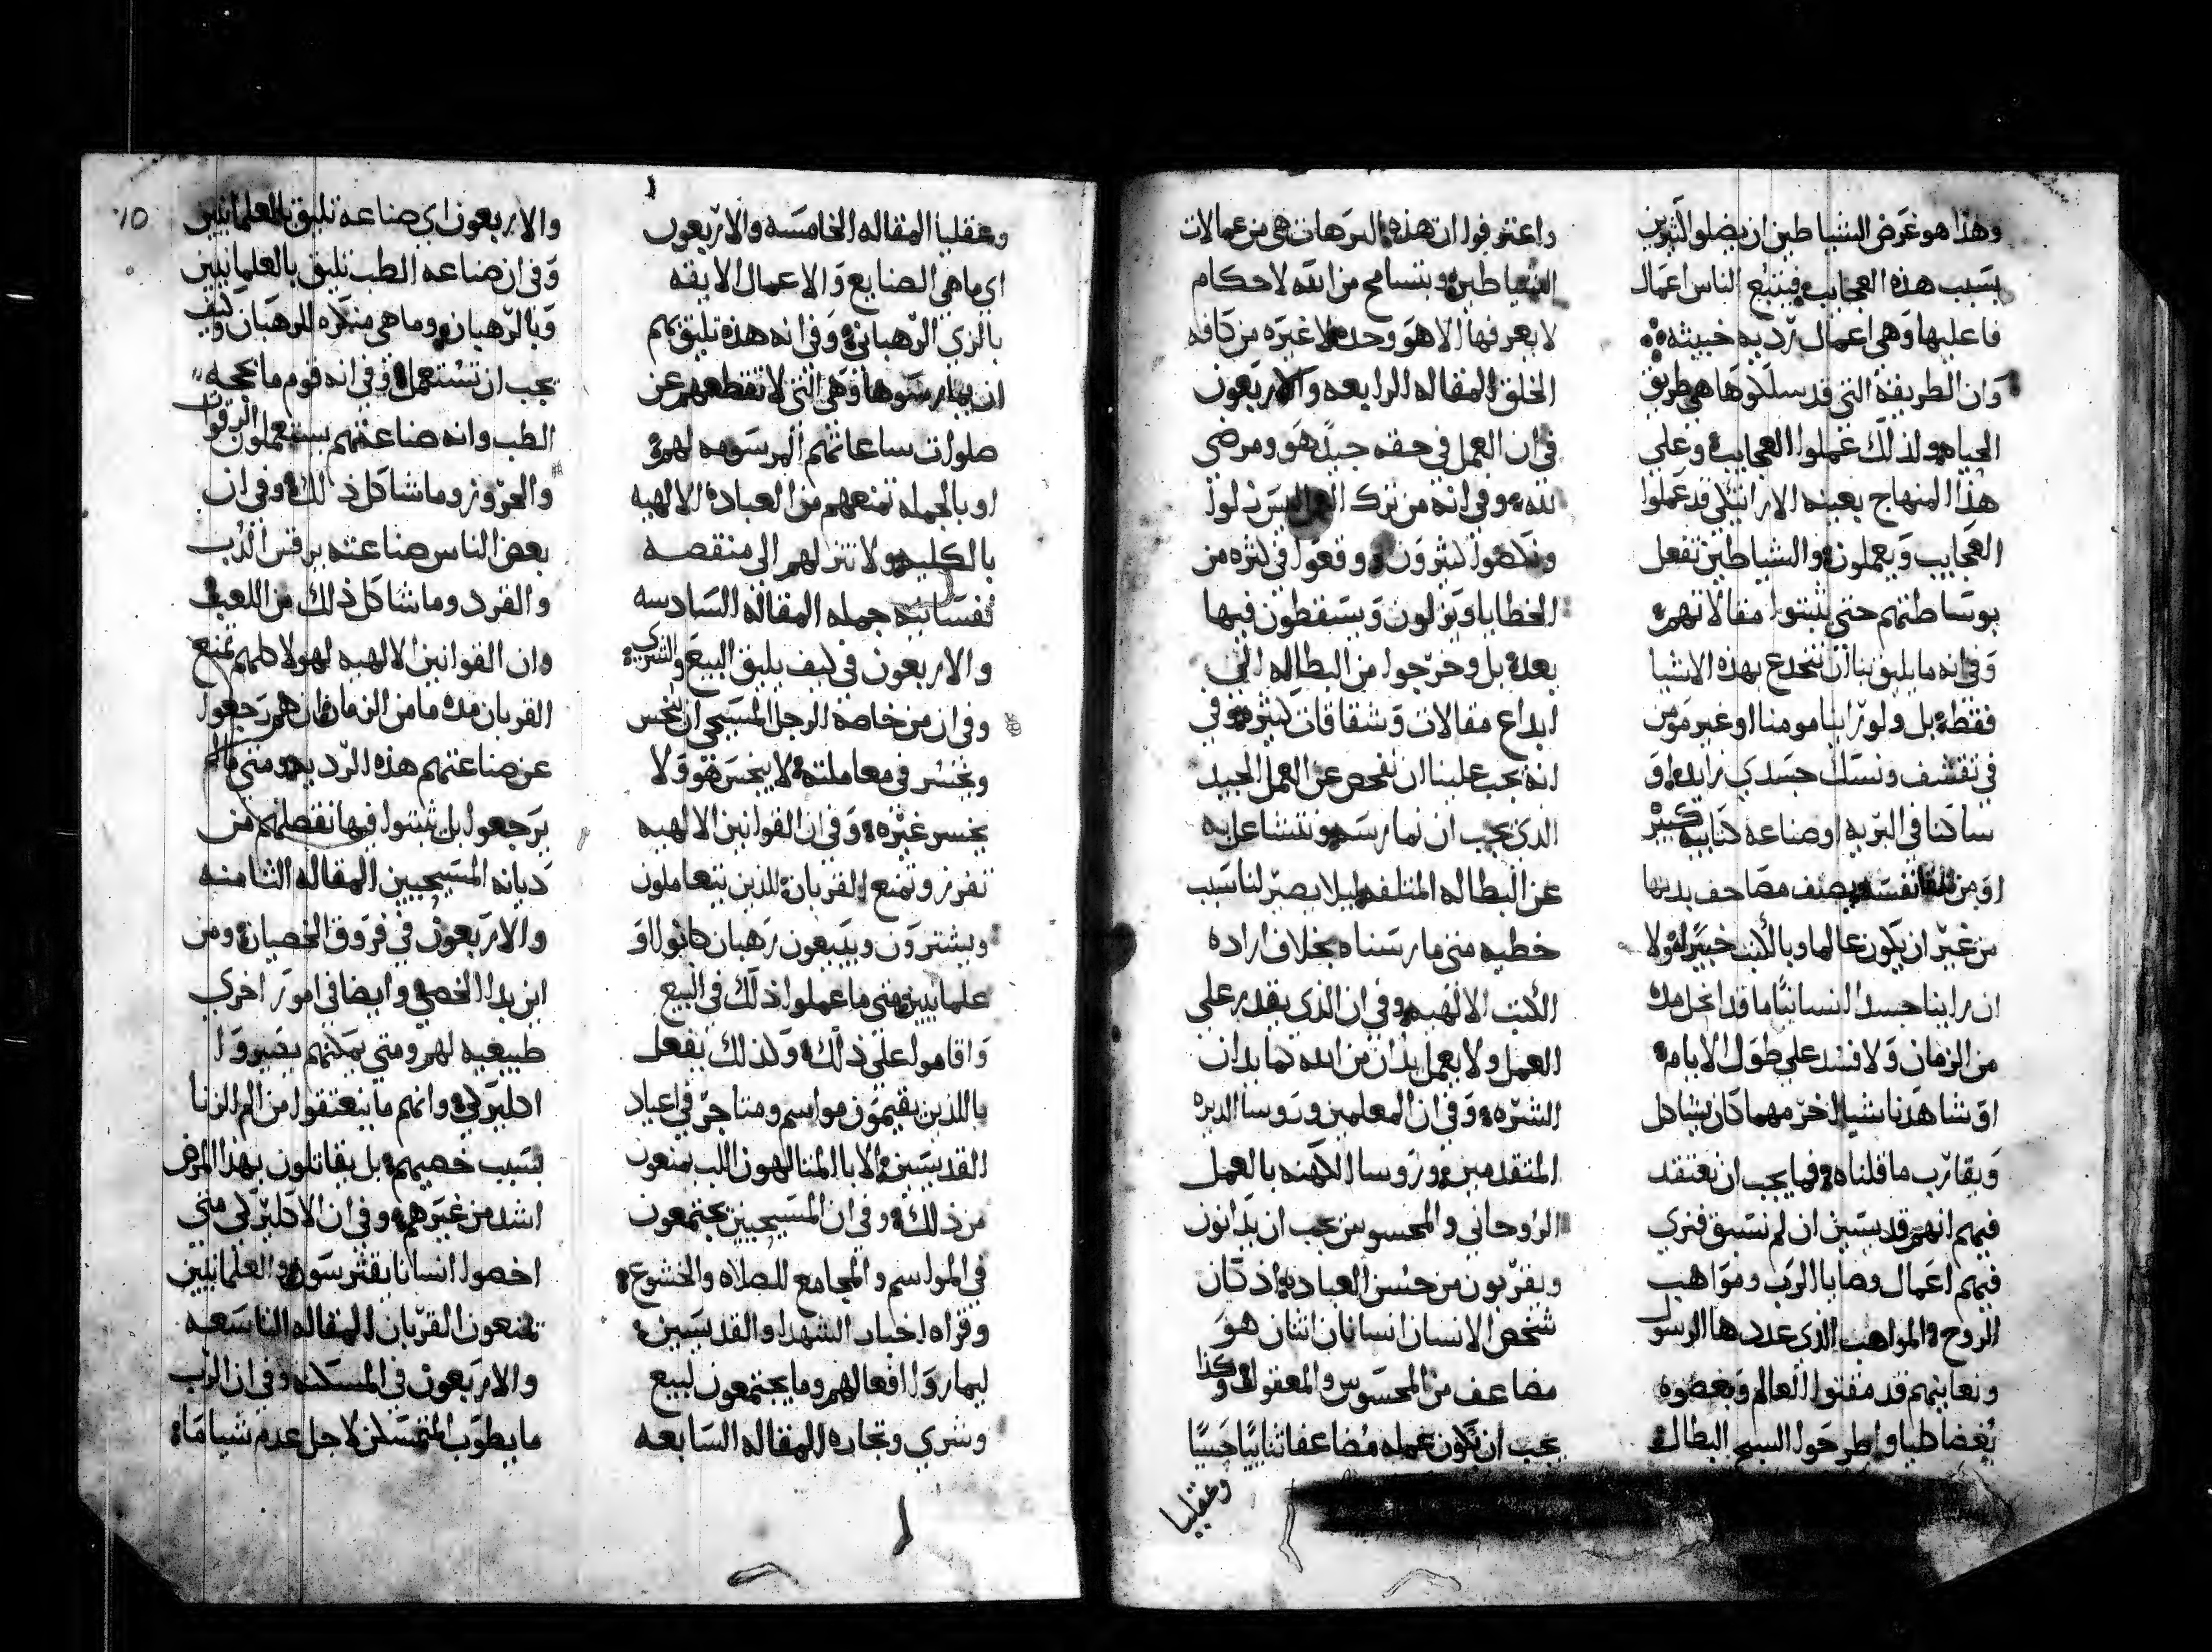 وهذا هو غرض الشياطين ان يضلو الكثيرين
بسبب هذه العجايب فيتبع الناس اعمال
فاعليها وهي اعمال رديه خبيثه
وان الطريقة التي قد سلكوها هي طريق
الحياه ولذلك عملوا العجايب وعلي
هذا المنهاج بعينه الاراتيكي قد عملوا
العجايب ويعملون والشياطين تفعل
بوساطتهم حتي يثبتوا مقالاتهم
وفي انه ما يليق بنا ان ننخدع بهذه الاشيا
فقط بل ولو راينا مومنا او غير مومن
في تقشف ونسك جسدي زايد او
ساكنا في البريه او صناعه كنايسه كبير
او من تلقا نفسه يصنف مصاحف يدينها
من غير ان يكون عالما وبالكتب خبيرا ولا
ان راينا جسد انسانيا ما قد انحل مده
من الزمان ولا فسد علي طول الايام
او شاهدنا شيا اخر مهما كان يشاكل
ويقارب ما قلناه فما يجب ان نعتقد
فيهم انهم قديسين ان لم نسبق فنري
فيهم اعمال وصايا الرب ومواهب
الروح والمواهب الذي عددها الرسول
ونعاينهم قد مقتوا العالم وبغضوه
بغضا طبا واطرحوا السبح البطاله
واعترفوا ان هذه الترهات هي من عمالات
الشياطين وبتسامح من الله لاحكام
لا يعرفها الا هو وحده لا غيره من كافه
الخلق المقاله الرابعه والاربعون
في ان العمل في حقه جيد هو ومرضي
لله وفي انه من ترك العمل
كثيرون ووقعوا في كثره من
الخطايا ويزلون ويسقطون فيها
بعد بل وخرجوا من البطاله الي
ابداع مقالات وشقاقات كثيره وفي
انه يجب علينا ان نفحص عن العمل الجيد
الذي يجب ان نمارسه ونتشاغل به
عن البطاله المتلفه ليلا يصير لنا سبب
خطيه متي مارسناه بخلاف اراده
الكتب الالهيه وفي ان الذي يقدر علي
العمل ولا يعمل يدان من الله كما يدان
الشره وفي ان المعلمين وروسا الديره
المتقدمين وروسا الكهنه بالعمل
الروحاني والمحسوس يجب ان يدانون
ويقربون من حسن العباده اذ كان
شخص الانسان انسانان اثنان هو
مضاعف من المحسوس والمعقول وكذا
يجب ان يكون عمله مضاعفا ثنائيا حسيا
وعقليا
وعقليا المقاله الخامسه والاربعون
اي ما هي الصنايع والاعمال الايقه
بالزي الرهباني وفي انه هذه تليق بهم
ان يمارسوها وهي التي لا تقطعهم عن
صلوات ساعاتهم المرسومه لهم
او بالجمله تمنعهم من العباده الالهيه
بالكليه ولا تنزلهم الي منقصه
نفسانيه جمله المقاله السادسه
والاربعون في كيف يليق البيع والشري
وفي ان من خاصة الرجل المسيحي ان يخس
ويخسر في معاملته لا يخسر هو ولا
يخسر غيره وفي ان القوانين الالهيه
تفرز وتمنع القربان للذين يتعاملون
ويشترون ويبيعون رهبان كانوا او
علمانيين ومتي ما عملوا ذلك في البيع
واقاموا علي ذلك وكذلك يفعل
بالذين يقيمون مواسم ومتاجر في اعياد
القديسين والابا المتالهون اللب يمنعون
من ذلك وفي ان المسيحيين يجتمعون
في المواسم والمجامع للصلاه والخشوع
وقراه اخبار الشهدا والقديسين
ليماروا افعالهم وما يجتمعون لبيع
وشري وتجاره المقاله السابعه
10
والاربعون اي صناعه تليق بالعلمانيين
وفي ان صناعه الطب تليق بالعلمانيين
وبالرهبان وما هي منكره للرهبان وكيف
يجب ان تستعمل وفي انه قوم ما يحجه
الطب وانه صناعتهم يستعملون الرقوات
والحروز وما شاكل ذلك وفي ان
بعض الناس صناعته يرقص الدب
والقرد وما شاكل ذلك من اللعب
وان القوانين الالهيه لهولا كلهم تمنع
القربان مده ما من الزمان فان هم رجعوا
عن صناعتهم هذه الرديه ومتي ما لم
يرجعوا بل ثبتوا فيها تفصلهم من
ديانه المسيحيين المقاله الثامنه
والاربعون في فروق الخصيان ومن
اين بدا الخصي وايضا في امور اخري
طبيعيه لهم ومتي يمكنهم يصيروا
اكليركي وانهم ما ينعتقوا من الم الزنا
بسبب خصيهم بل يقاتلون بهذا المرض
اشد من غيرهم وفي ان الاكليركي متي
اخصوا انسانا يقترسون والعلمانيين
تمنعون القربان المقاله التاسعه
والاربعون في المسكنه وفي ان الرب
ما يطوب المتمسكن لاجل عدم شيا ما